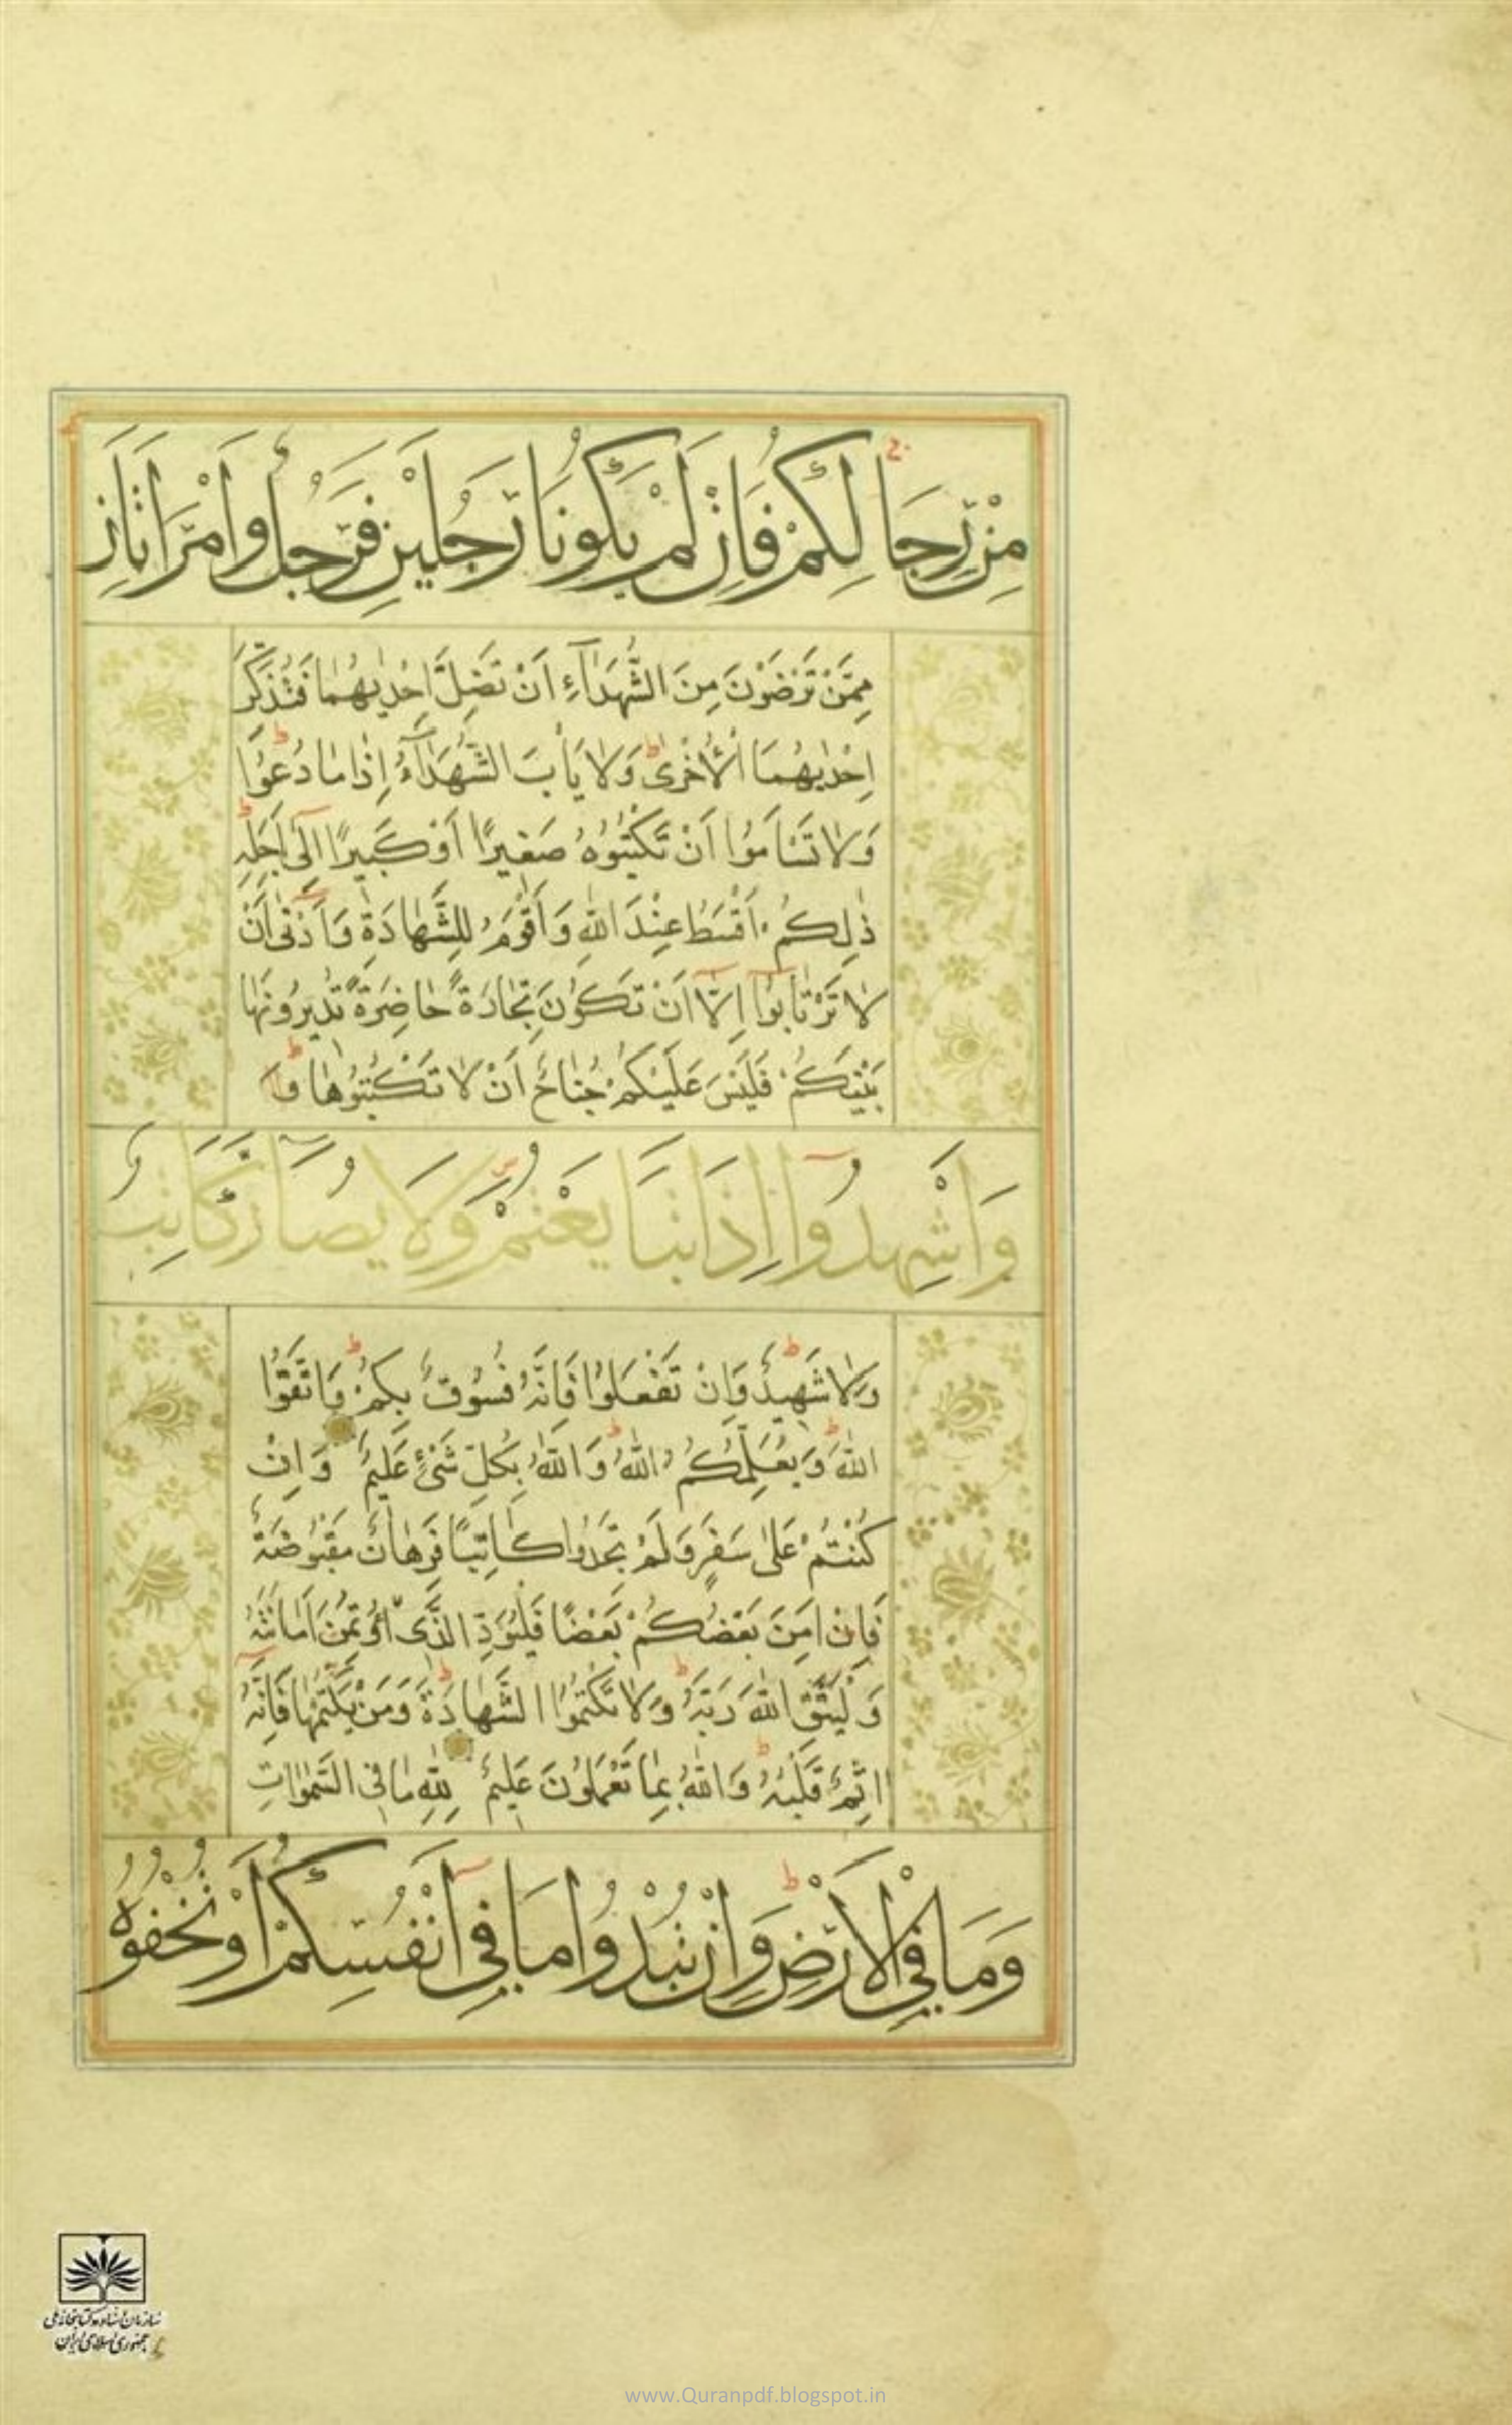 مِنْ رِجَالِكُمْ فَاِنْ لَمْ يَكُونَا رَجُلَيْنِ فَرَجُلٌ وَامْرَاَتَانِ
مِمَّنْ تَرْضَوْنَ مِنَ الشُّهَدَآءِ اَنْ تَضِلَّ اِحْدٰيهُمٰا فَتُذَكِّرَ
اِحْدٰيهُمَا الْاُخْرىٰ ط وَلٰا يَأْبَ الشُّهَدَآءُ اِذٰا مٰا دُعُوْا ط
وَلٰا تَسْاَمُوْا اَنْ تَكْتُبُوْهُ صَغِيْرًا اَوْ كَبِيْرًا اِلٰٓى اَجَلِهٖ ط
ذٰلِكُمْ اَقْسَطُ عِنْدَ اللّٰهِ وَاَقْوَمُ لِلشَّهٰادَةِ وَاَدْنٰى اَنْ
لٰا تَرْتٰابُوْٓا اِلَّٓا اَنْ تَكُوْنَ تِجٰارَةً حٰاضِرَةً تُدِيْرُوْنَهٰا
بَيْنَكُمْ فَلَيْسَ عَلَيْكُمْ جُنٰاحٌ اَنْ لٰا تَكْتُبُوْهٰا ط وَا
وَاَشْهِدُوٓا اِذَا تَبَايَعْتُمْ وَلَا يُضَارَّ كَاتِبٌ
وَلٰا شَهِيْدٌ ط وَاِنْ تَفْعَلُوْا فَاِنَّهُ فُسُوْقٌ بِكُمْ ط وَاتَّقُوْا
اللّٰهَ ط وَيُعَلِّمُكُمُ اللّٰهُ ط وَاللّٰهُ بِكُلِّ شَىْءٍ عَلِيْمٌ وَاِنْ
كُنْتُمْ عَلىٰ سَفَرٍ وَلَمْ تَجِدُوا كٰاتِبًا فَرِهٰانٌ مَقْبُوْضَةٌ
فَاِنْ اَمِنَ بَعْضُكُمْ بَعْضًا فَلْيُؤَدِّ الَّذِى اؤْتُمِنَ اَمٰانَتَهُ
وَلْيَتَّقِ اللّٰهَ رَبَّهُ ط وَلٰا تَكْتُمُوْا الشَّهٰادَةَ ط وَمَنْ يَكْتُمْهٰا فَاِنَّهُ
اٰثِمٌ قَلْبُهُ ط وَاللّٰهُ بِمٰا تَعْمَلُوْنَ عَلِيْمٌ لِلّٰهِ مٰا فِى السَّمٰوٰاتِ
وَمَا فِي الْاَرْضِ ط وَاِنْ تُبْدُوْا مَا فِىٓ اَنْفُسِكُمْ اَوْ تُخْفُوْهُ
سازمان اسناد و کتابخانه ملی
جمهوری اسلامی ایران
www.Quranpdf.blogspot.in